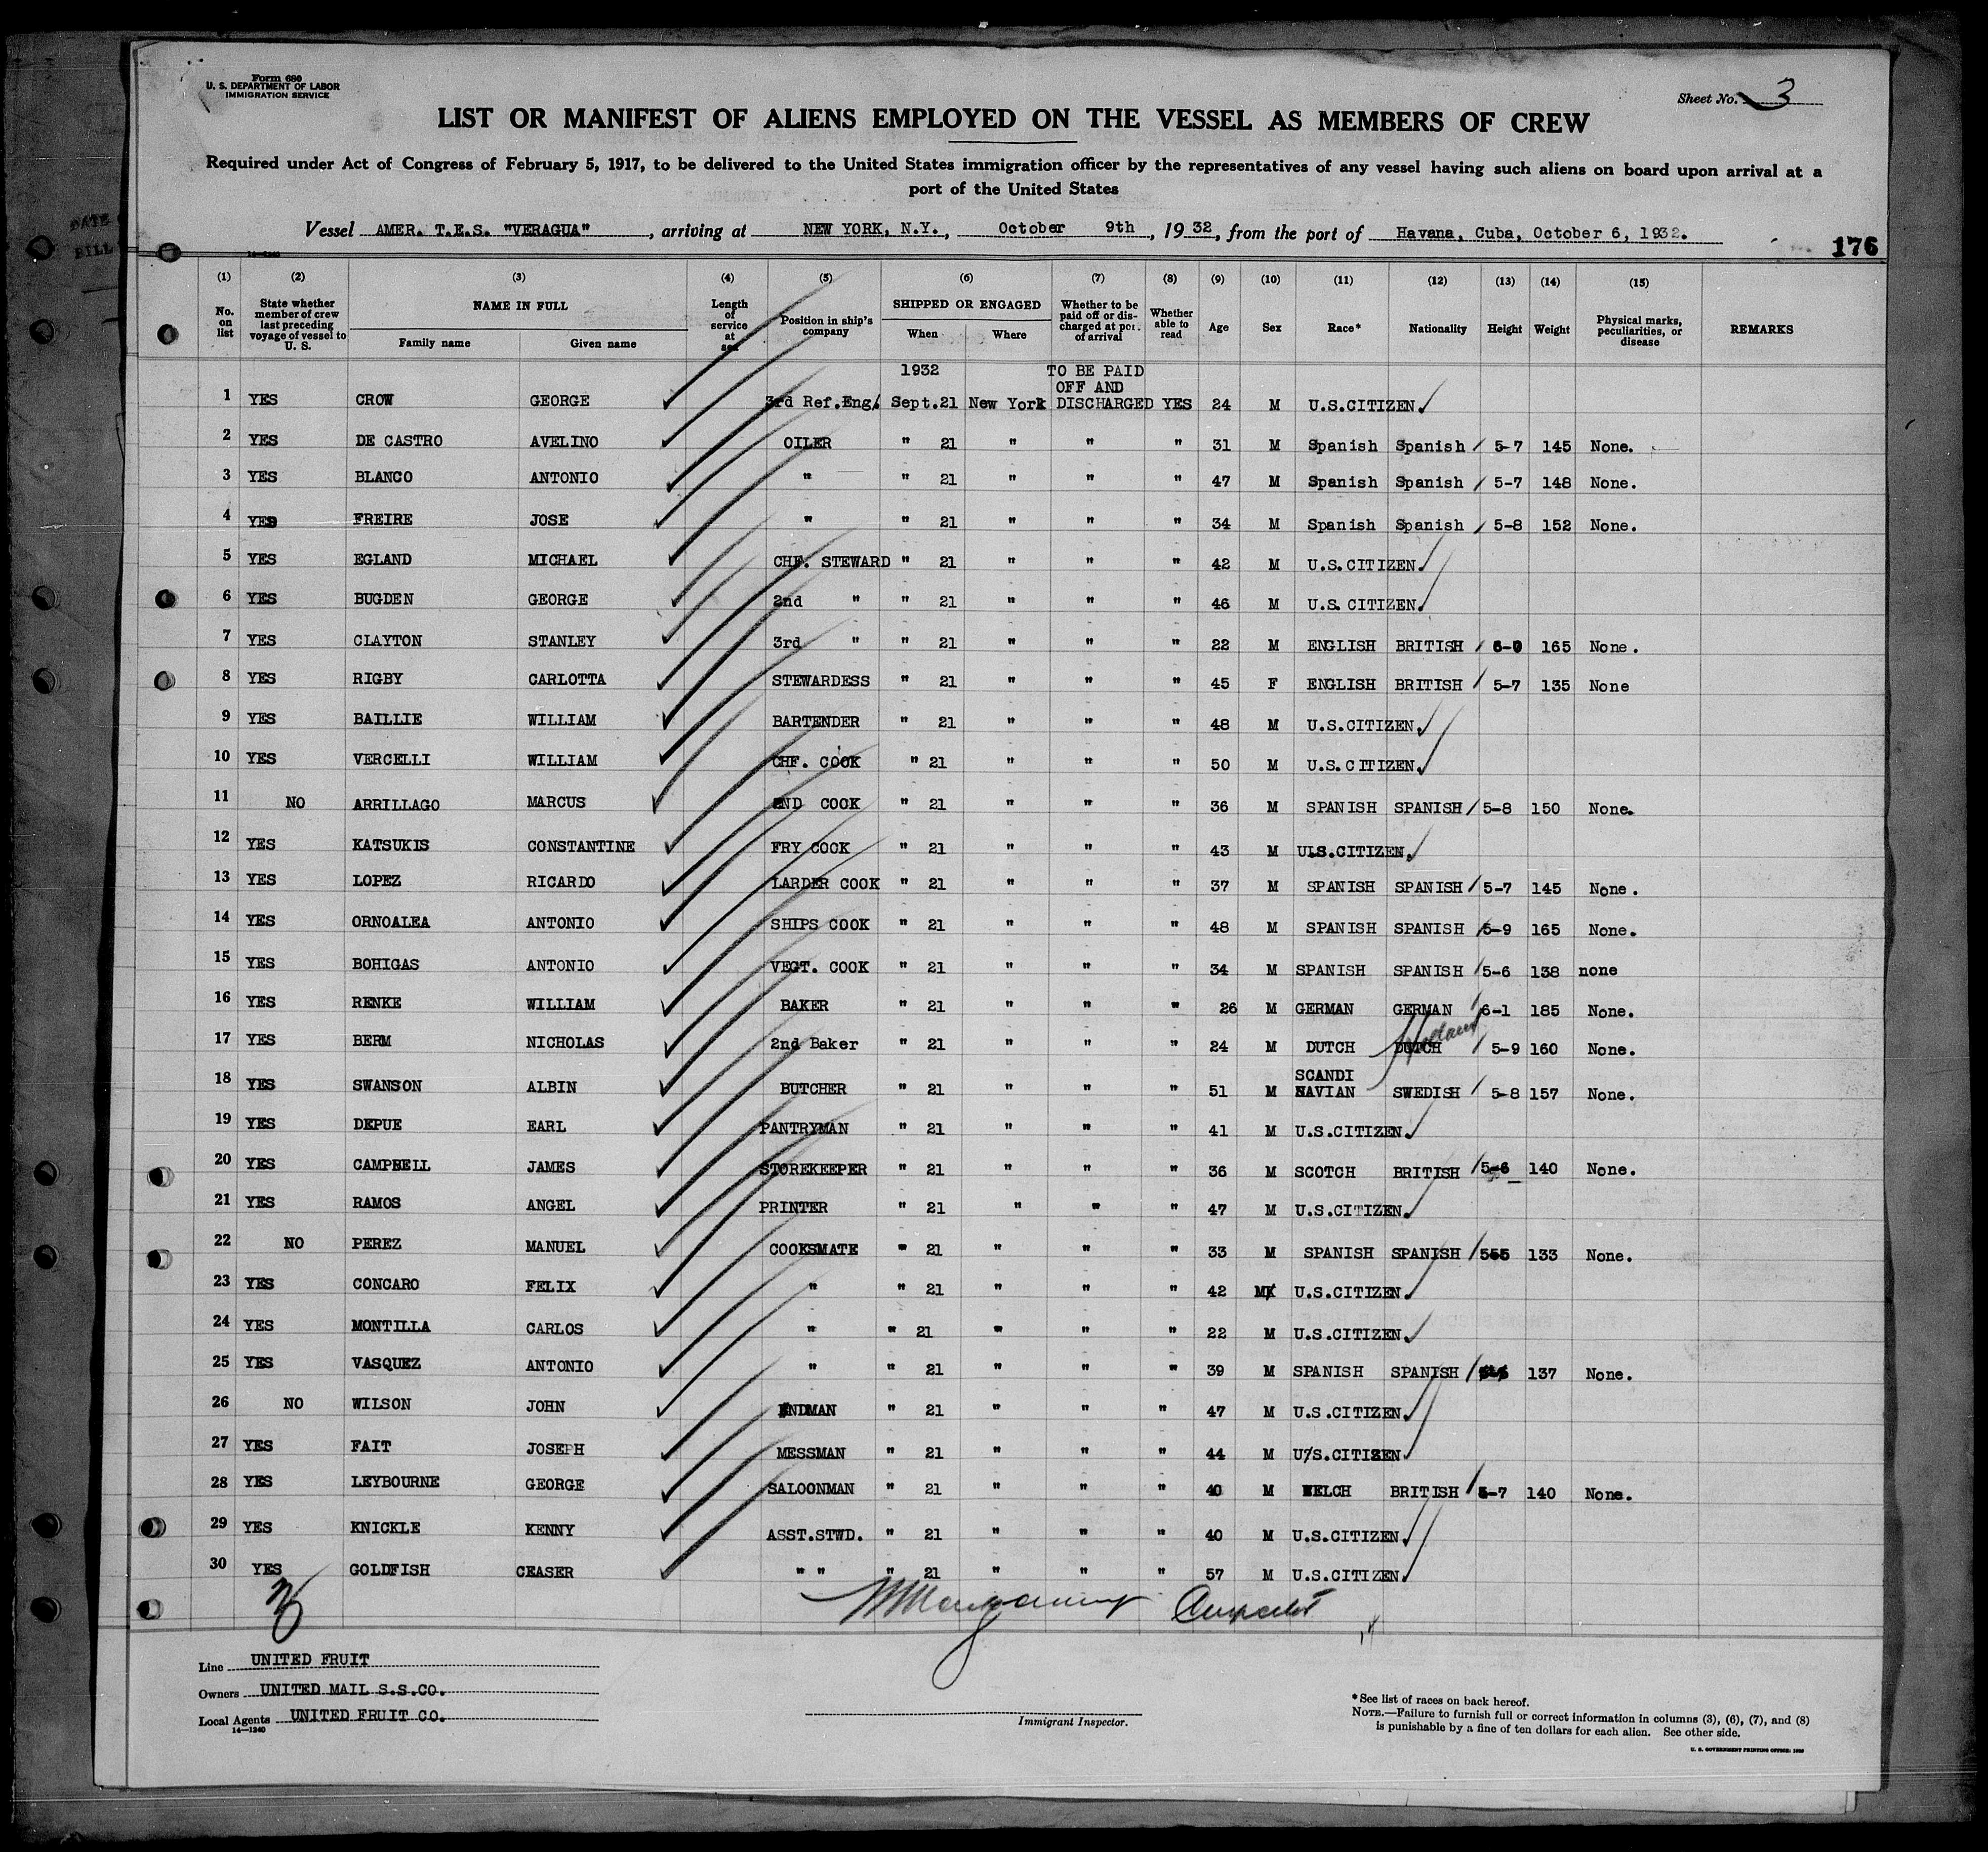 Form 680
U. S. DEPARTMENT OF LABOR
IMMIGRATION SERVICE
Sheet No. 3
LIST OR MANIFEST OF ALIENS EMPLOYED ON THE VESSEL AS MEMBERS OF CREW
Required under Act of Congress of February 5, 1917, to be delivered to the United States immigration officer by the representatives of any vessel having such aliens on board upon arrival at a
port of the United States
Vessel AMER. T.E.S. "VERAGUA", arriving at NEW YORK, N.Y., October 9th, 1932, from the port of Havana, Cuba, October 6, 1932.
176
14—1240
(1) (2) (3) (4) (5) (6) (7) (8) (9) (10) (11) (12) (13) (14) (15)
No. on list State whether member of crew last preceding voyage of vessel to U. S. NAME IN FULL Family name Given name Length of service at sea Position in ship's company SHIPPED OR ENGAGED When Where Whether to be paid off or discharged at port of arrival Whether able to read Age Sex Race* Nationality Height Weight Physical marks, peculiarities, or disease REMARKS
1932 TO BE PAID OFF AND
1 YES CROW GEORGE 3rd Ref.Eng. Sept.21 New York DISCHARGED YES 24 M U.S.CITIZEN
2 YES DE CASTRO AVELINO OILER " 21 " " " 31 M Spanish Spanish 5-7 145 None.
3 YES BLANCO ANTONIO " " 21 " " " 47 M Spanish Spanish 5-7 148 None.
4 YES FREIRE JOSE " " 21 " " " 34 M Spanish Spanish 5-8 152 None.
5 YES EGLAND MICHAEL CHF. STEWARD " 21 " " " 42 M U.S.CITIZEN
6 YES BUGDEN GEORGE 2nd " " 21 " " " 46 M U.S. CITIZEN
7 YES CLAYTON STANLEY 3rd " " 21 " " " 22 M ENGLISH BRITISH 6-0 165 None.
8 YES RIGBY CARLOTTA STEWARDESS " 21 " " " 45 F ENGLISH BRITISH 5-7 135 None
9 YES BAILLIE WILLIAM BARTENDER " 21 " " " 48 M U.S.CITIZEN
10 YES VERCELLI WILLIAM CHF. COOK " 21 " " " 50 M U.S.CITIZEN
11 NO ARRILLAGO MARCUS 2ND COOK " 21 " " " 36 M SPANISH SPANISH 5-8 150 None.
12 YES KATSUKIS CONSTANTINE FRY COOK " 21 " " " 43 M U.S.CITIZEN
13 YES LOPEZ RICARDO LARDER COOK " 21 " " " 37 M SPANISH SPANISH 5-7 145 None.
14 YES ORNOALEA ANTONIO SHIPS COOK " 21 " " " 48 M SPANISH SPANISH 5-9 165 None.
15 YES BOHIGAS ANTONIO VEGT. COOK " 21 " " " 34 M SPANISH SPANISH 5-6 138 none
16 YES RENKE WILLIAM BAKER " 21 " " " 26 M GERMAN GERMAN 6-1 185 None.
17 YES BERM NICHOLAS 2nd Baker " 21 " " " 24 M DUTCH DUTCH Holland 5-9 160 None.
18 YES SWANSON ALBIN BUTCHER " 21 " " " 51 M SCANDI NAVIAN SWEDISH 5-8 157 None.
19 YES DEPUE EARL PANTRYMAN " 21 " " " 41 M U.S.CITIZEN
20 YES CAMPBELL JAMES STOREKEEPER " 21 " " " 36 M SCOTCH BRITISH 5-6 140 None.
21 YES RAMOS ANGEL PRINTER " 21 " " " 47 M U.S.CITIZEN
22 NO PEREZ MANUEL COOKSMATE " 21 " " " 33 M SPANISH SPANISH 5-5 133 None.
23 YES CONCARO FELIX " " 21 " " " 42 M U.S.CITIZEN
24 YES MONTILLA CARLOS " " 21 " " " 22 M U.S.CITIZEN
25 YES VASQUEZ ANTONIO " " 21 " " " 39 M SPANISH SPANISH 137 None.
26 NO WILSON JOHN " 21 " " " 47 M U.S.CITIZEN
27 YES FAIT JOSEPH MESSMAN " 21 " " " 44 M U/S.CITIZEN
28 YES LEYBOURNE GEORGE SALOONMAN " 21 " " " 40 M WELCH BRITISH 5-7 140 None.
29 YES KNICKLE KENNY ASST.STWD. " 21 " " " 40 M U.S.CITIZEN
30 YES GOLDFISH CEASER " " " 21 " " " 57 M U.S.CITIZEN
Line UNITED FRUIT
Owners UNITED MAIL S.S.CO.
Local Agents UNITED FRUIT CO.
14—1240
Immigrant Inspector.
*See list of races on back hereof.
NOTE.—Failure to furnish full or correct information in columns (3), (6), (7), and (8)
is punishable by a fine of ten dollars for each alien. See other side.